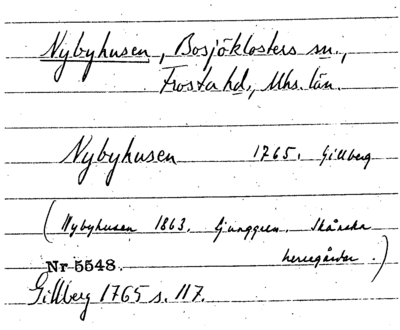 Nybyhusen, Bosjöklosters sn.,
Frosta hd., Mhs. län.
Nybyhusen 1765. Gillberg
(Nybyhusen 1863. Ljunggren. Skånska
herregårdar.)
Nr 5548.
Gillberg 1765 s. 117.